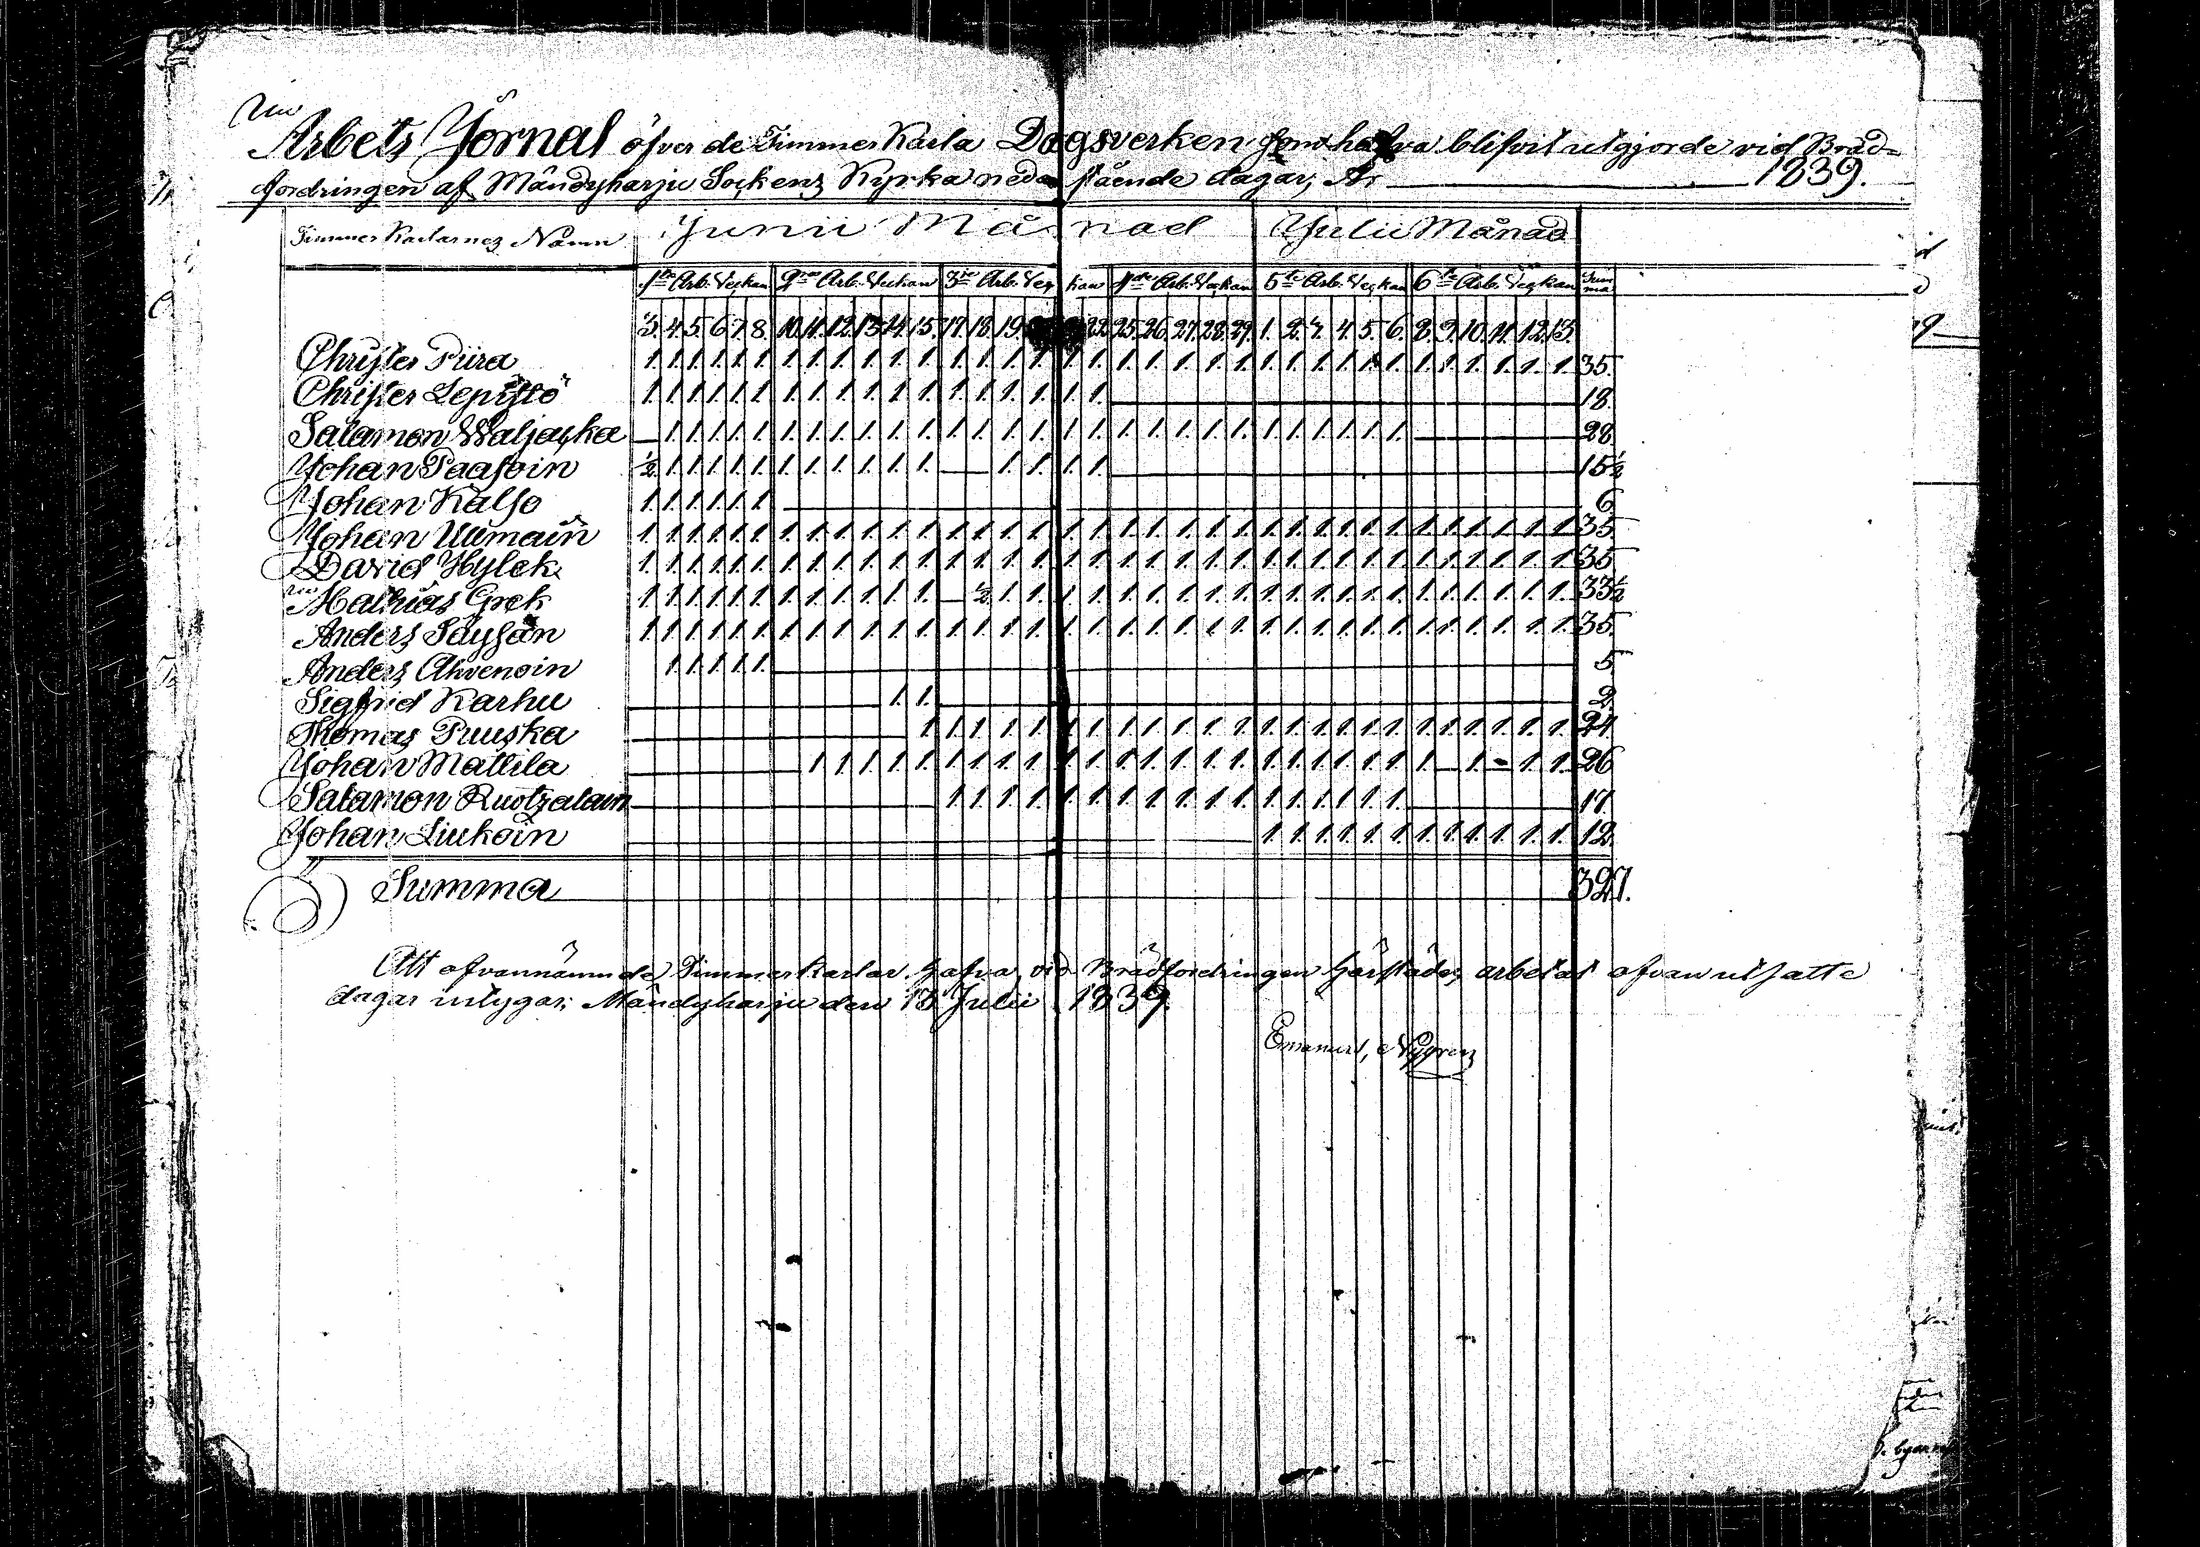 Arbets Jörnal öfver de Timmer Karla Dagsverken som hafva blifvit utgjorde vid Bräd-
fordringen af Mändyharju Sockens Kyrka nedanstående dagar, År 1839.
Timmer Karlarnes Namn Junii Månad Julii Månad
1sta Arb. Veckan 2dra Arb. Veckan 3die Arb. Veckan 4de Arb. Veckan 5te Arb. Veckan 6te Arb. Veckan Summa
3. 4. 5. 6. 7. 8. 10. 11. 12. 13. 14. 15. 17. 18. 19. 22. 25. 26. 27. 28. 29. 1. 2. 3. 4. 5. 6. 8. 9. 10. 11. 12. 13.
Christer Piira 1. 1. 1. 1. 1. 1. 1. 1. 1. 1. 1. 1. 1. 1. 1. 1. 1. 1. 1. 1. 1. 1. 1. 1. 1. 1. 1. 1. 1. 1. 1. 1. 1. 1. 1. 35.
Christer Lepistö 1. 1. 1. 1. 1. 1. 1. 1. 1. 1. 1. 1. 1. 1. 1. 1. 1. 1. 18.
Salamon Waljacka 1. 1. 1. 1. 1. 1. 1. 1. 1. 1. 1. 1. 1. 1. 1. 1. 1. 1. 1. 1. 1. 1. 1. 1. 1. 1. 1. 1. 28
Johan Paasoin ½ 1. 1. 1. 1. 1. 1. 1. 1. 1. 1. 1. 1. 1. 1. 1. 15½
Johan Kalso 1. 1. 1. 1. 1. 1. 6
Johan Ulimain 1. 1. 1. 1. 1. 1. 1. 1. 1. 1. 1. 1. 1. 1. 1. 1. 1. 1. 1. 1. 1. 1. 1. 1. 1. 1. 1. 1. 1. 1. 1. 1. 1. 1. 1. 35
David Hylek 1. 1. 1. 1. 1. 1. 1. 1. 1. 1. 1. 1. 1. 1. 1. 1. 1. 1. 1. 1. 1. 1. 1. 1. 1. 1. 1. 1. 1. 1. 1. 1. 1. 1. 1. 35
Mathias Grek 1. 1. 1. 1. 1. 1. 1. 1. 1. 1. 1. 1. ½ 1. 1. 1. 1. 1. 1. 1. 1. 1. 1. 1. 1. 1. 1. 1. 1. 1. 1. 1. 1. 1. 33½
Anders Säysän 1. 1. 1. 1. 1. 1. 1. 1. 1. 1. 1. 1. 1. 1. 1. 1. 1. 1. 1. 1. 1. 1. 1. 1. 1. 1. 1. 1. 1. 1. 1. 1. 1. 1. 1. 35.
Anders Ahvenoin 1. 1. 1. 1. 1. 5
Sigfrid Karhu 1. 1. 2.
Thomas Puuska 1 1. 1. 1. 1. 1. 1. 1. 1. 1. 1. 1. 1. 1. 1. 1. 1. 1. 1. 1. 1. 1. 1. 1. 24.
Johan Mattila 1 1 1. 1. 1. 1. 1. 1. 1. 1. 1. 1. 1. 1. 1. 1. 1. 1. 1. 1. 1. 1. 1. 1. 1. 1. 26
Salamon Ruotzalain 1. 1. 1. 1. 1. 1. 1. 1. 1. 1. 1. 1. 1. 1. 1. 1. 1. 17.
Johan Liukoin 1. 1. 1. 1. 1. 1. 1. 1. 1. 1. 1. 1. 12.
Summa 327.
Att ofvannämnde Timmerkarlar hafva vid Brädfordringen härstädes arbetat ofvan utsatte
dagar intygar; Mändyharju den 13 Julii 1839.
Emanuel, Nygren